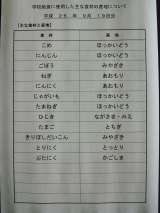 学校給食に使用した主な食材の産地について
平成 26年 9月 19日分
【主な食材と産地】
食 材 産 地
こめ ほっかいどう
にんじん ほっかいどう
ごぼう みやざき
ねぎ あおもり
にんにく あおもり
じゃがいも ほっかいどう
たまねぎ ほっかいどう
ひじき ながさき・みえ
たまご とちぎ
きりぼしだいこん みやざき
とりにく とっとり
ぶたにく かごしま